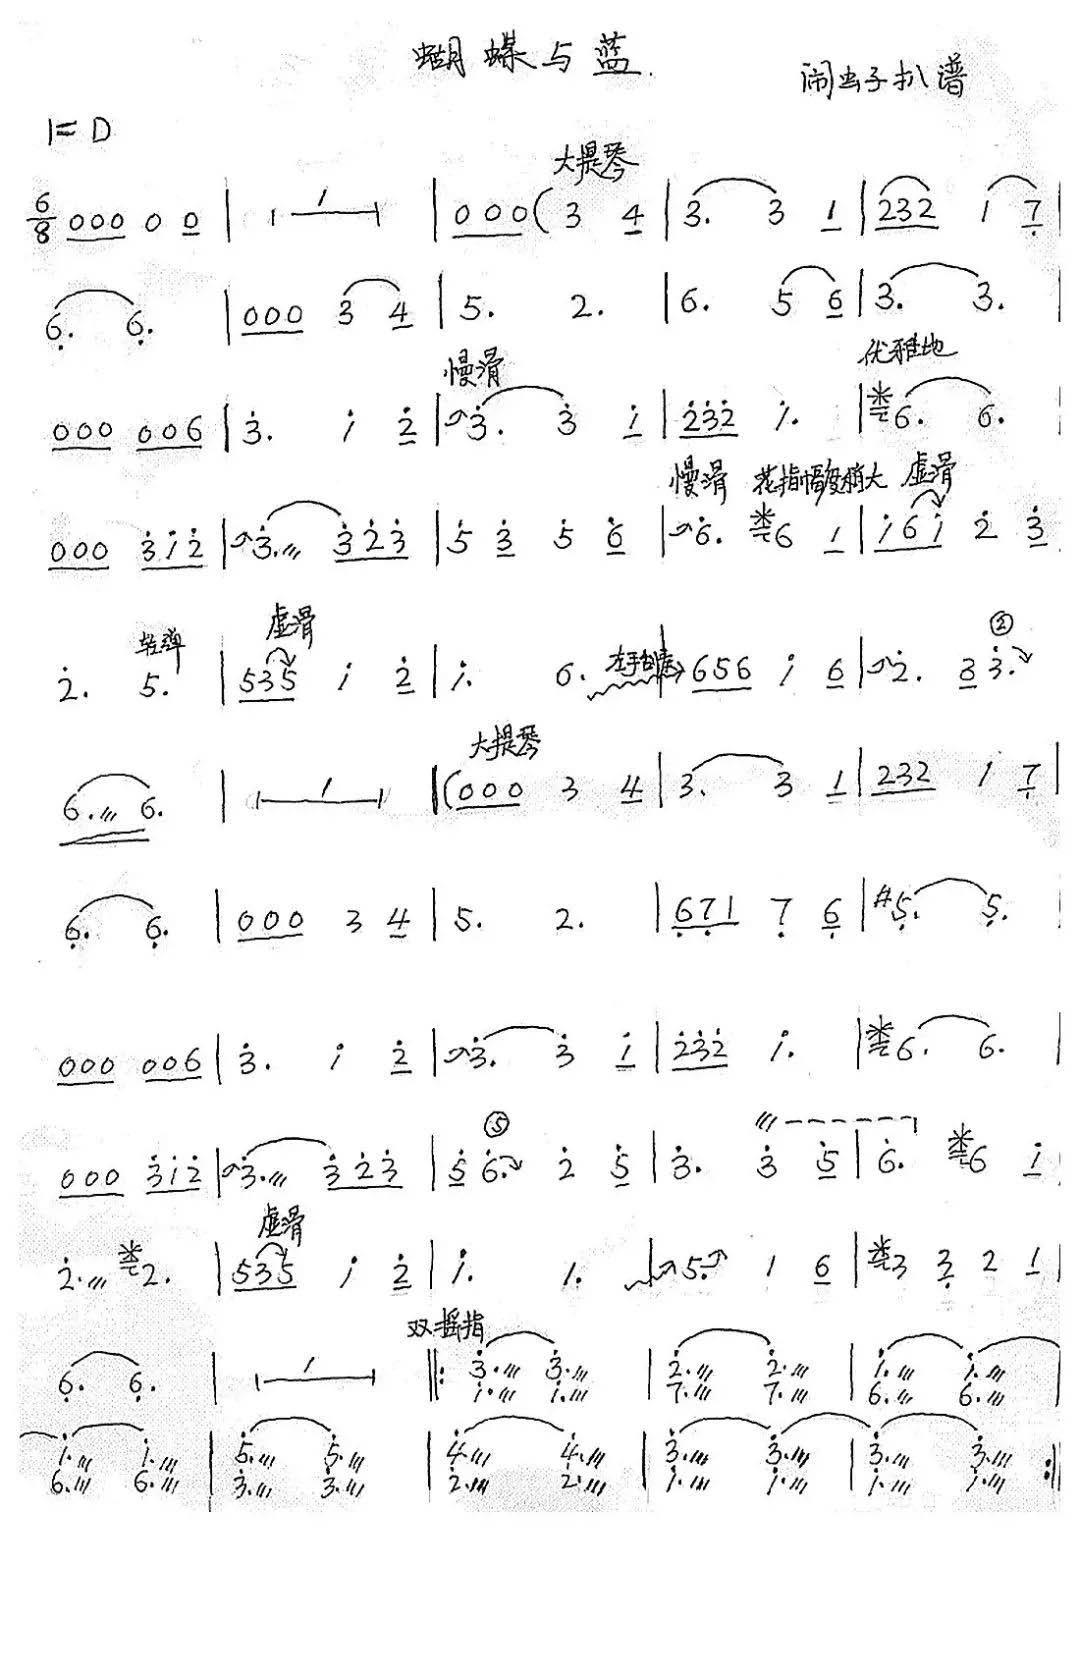 蝴蝶与蓝.
闹虫子扒谱
1=D
大提琴
6/8 000 0 0 | 1 | 000 ( 3 4 | 3. 3 1 | 232 1 7 |
6. 6. | 000 3 4 | 5. 2. | 6. 5 6 | 3. 3. |
慢滑 优雅地
000 006 | 3. 1 2 | 3. 3 1 | 232 1. | 6. 6. |
慢滑 花指幅度稍大 虚滑
000 312 | 3. 323 | 5 3 5 6 | 6. 6 1 | 161 2 3
轻弹 虚滑 ②
2. 5. | 535 1 2 | 1. 6. 左手刮奏 | 656 1 6 | 2. 3 3.
大提琴
6. 6. | 1 | (000 3 4 | 3. 3 1 | 232 1 7 |
6. 6. | 000 3 4 | 5. 2. | 671 7 6 | #5. 5. |
000 006 | 3. 1 2 | 3. 3 1 | 232 1. | 6. 6. |
⑤
000 312 | 3. 323 | 5 6. 2 5 | 3. 3 5 | 6. 6 1
虚滑
2. 2. | 535 1 2 | 1. 1. | 5. 1 6 | 3 3 2 1 |
双摇指
6. 6. | 1 |: 3. 3. | 2. 2. | 1. 1. |
1. 1. | 7. 7. | 6. 6.
1. 1. | 5. 5. | 4. 4. | 3. 3. | 3. 3. :|
6. 6. | 3. 3. | 2. 2. | 1. 1. | 1. 1.